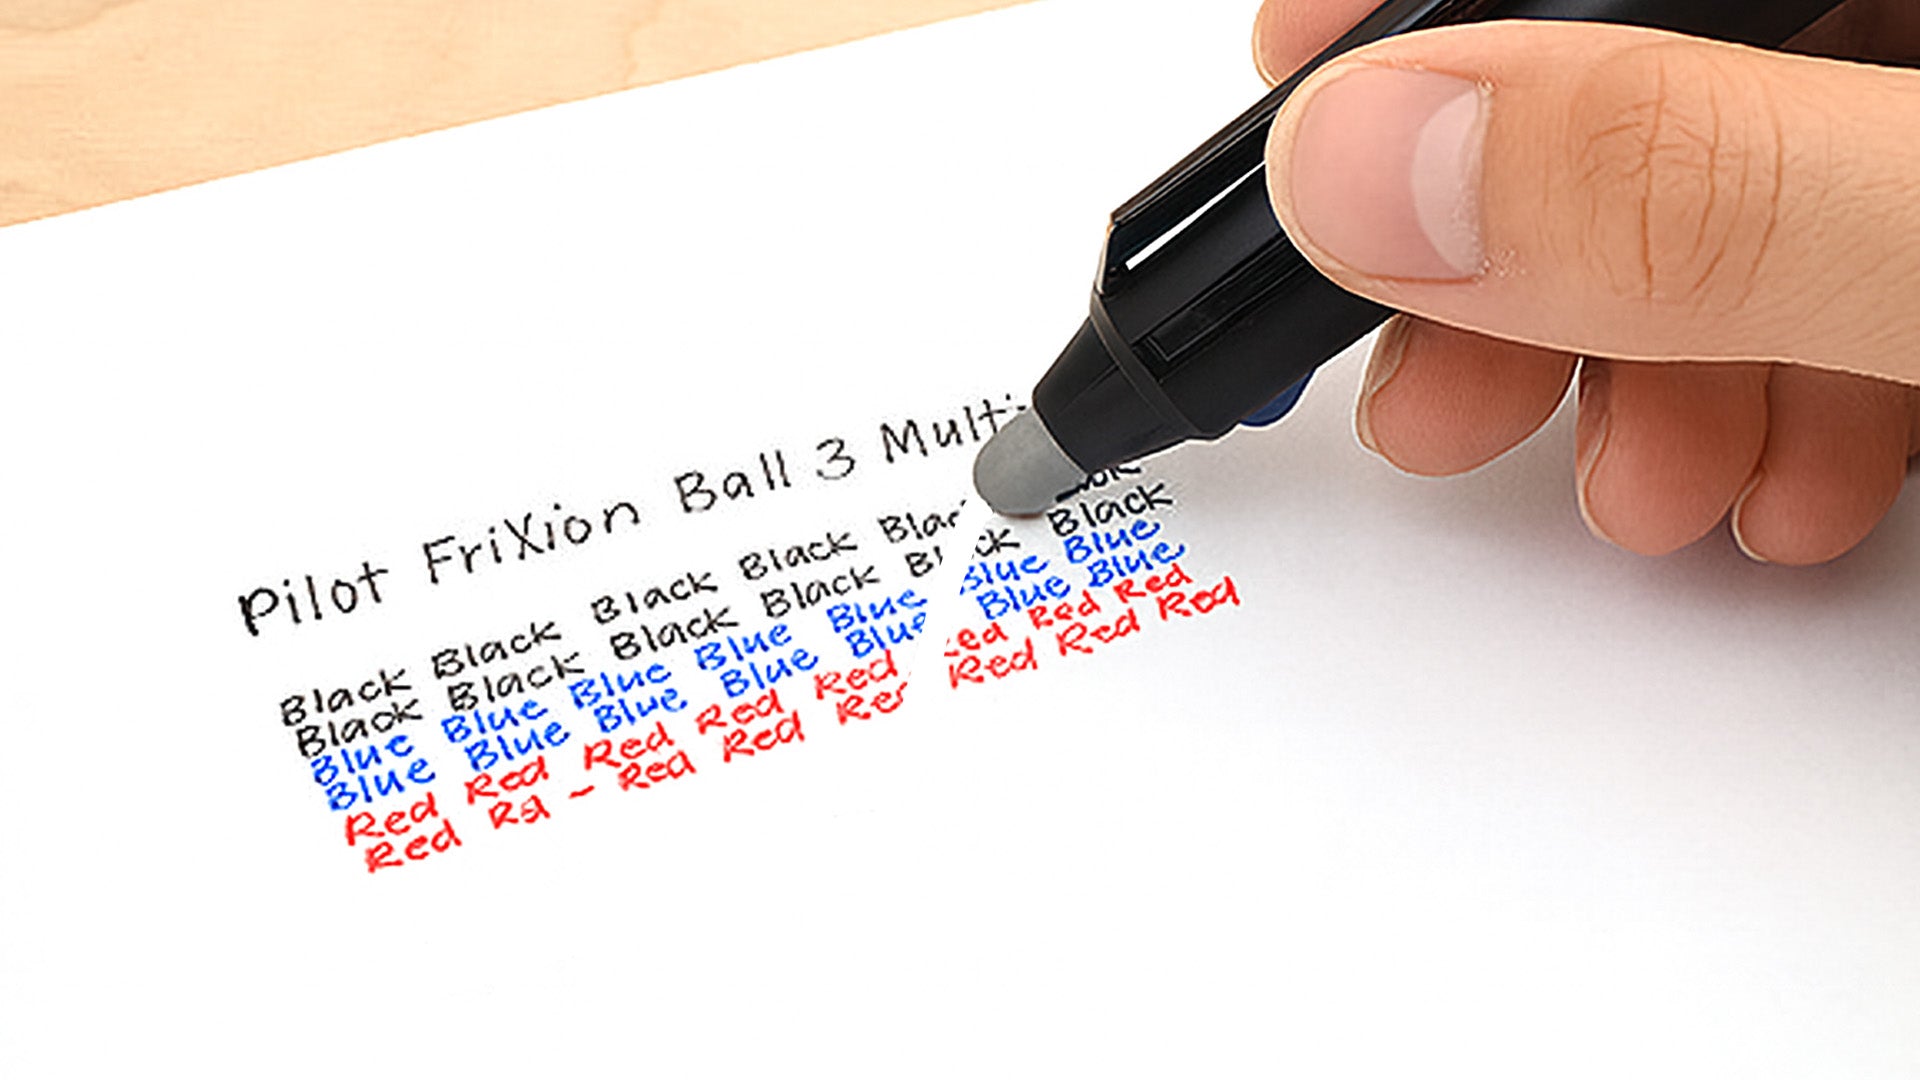 Pilot FriXion Ball 3 Multi
Black Black Black Black Blac
Black Black Black Black Bl ck Black
Blue Blue Blue Blue Blue Blue Blue
Blue Blue Blue Blue Blue Blue Blue
Red Red Red Red Red ed Red Red
Red Rd ~ Red Red Re Red Red Red